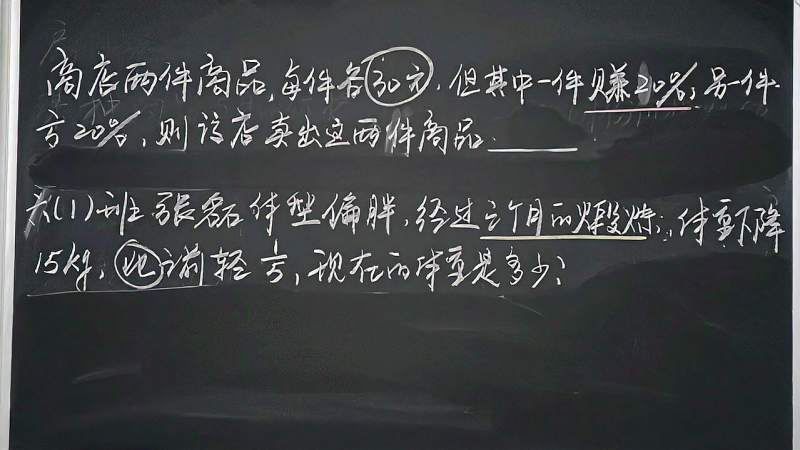 商店两件商品,每件各30元,但其中一件赚20%,另一件
亏20%,则该店卖出这两件商品
六(1)班张磊体型偏胖,经过三个月的煅炼,体重下降
15kg,比以前轻1/5,现在的体重是多少?